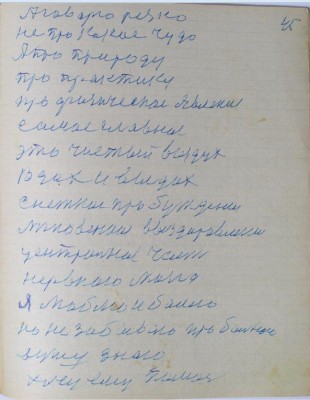 45
Я говорю резко
не про какое чудо
Я про природу
про практику
про физическое явление
самое главное
это чистый воздух
вдох и выдох
снежное пробуждение
мгновенное выздоровление
центральной части
нервного
я люблю и болею
но не забываю про больного
душу
хочу ему